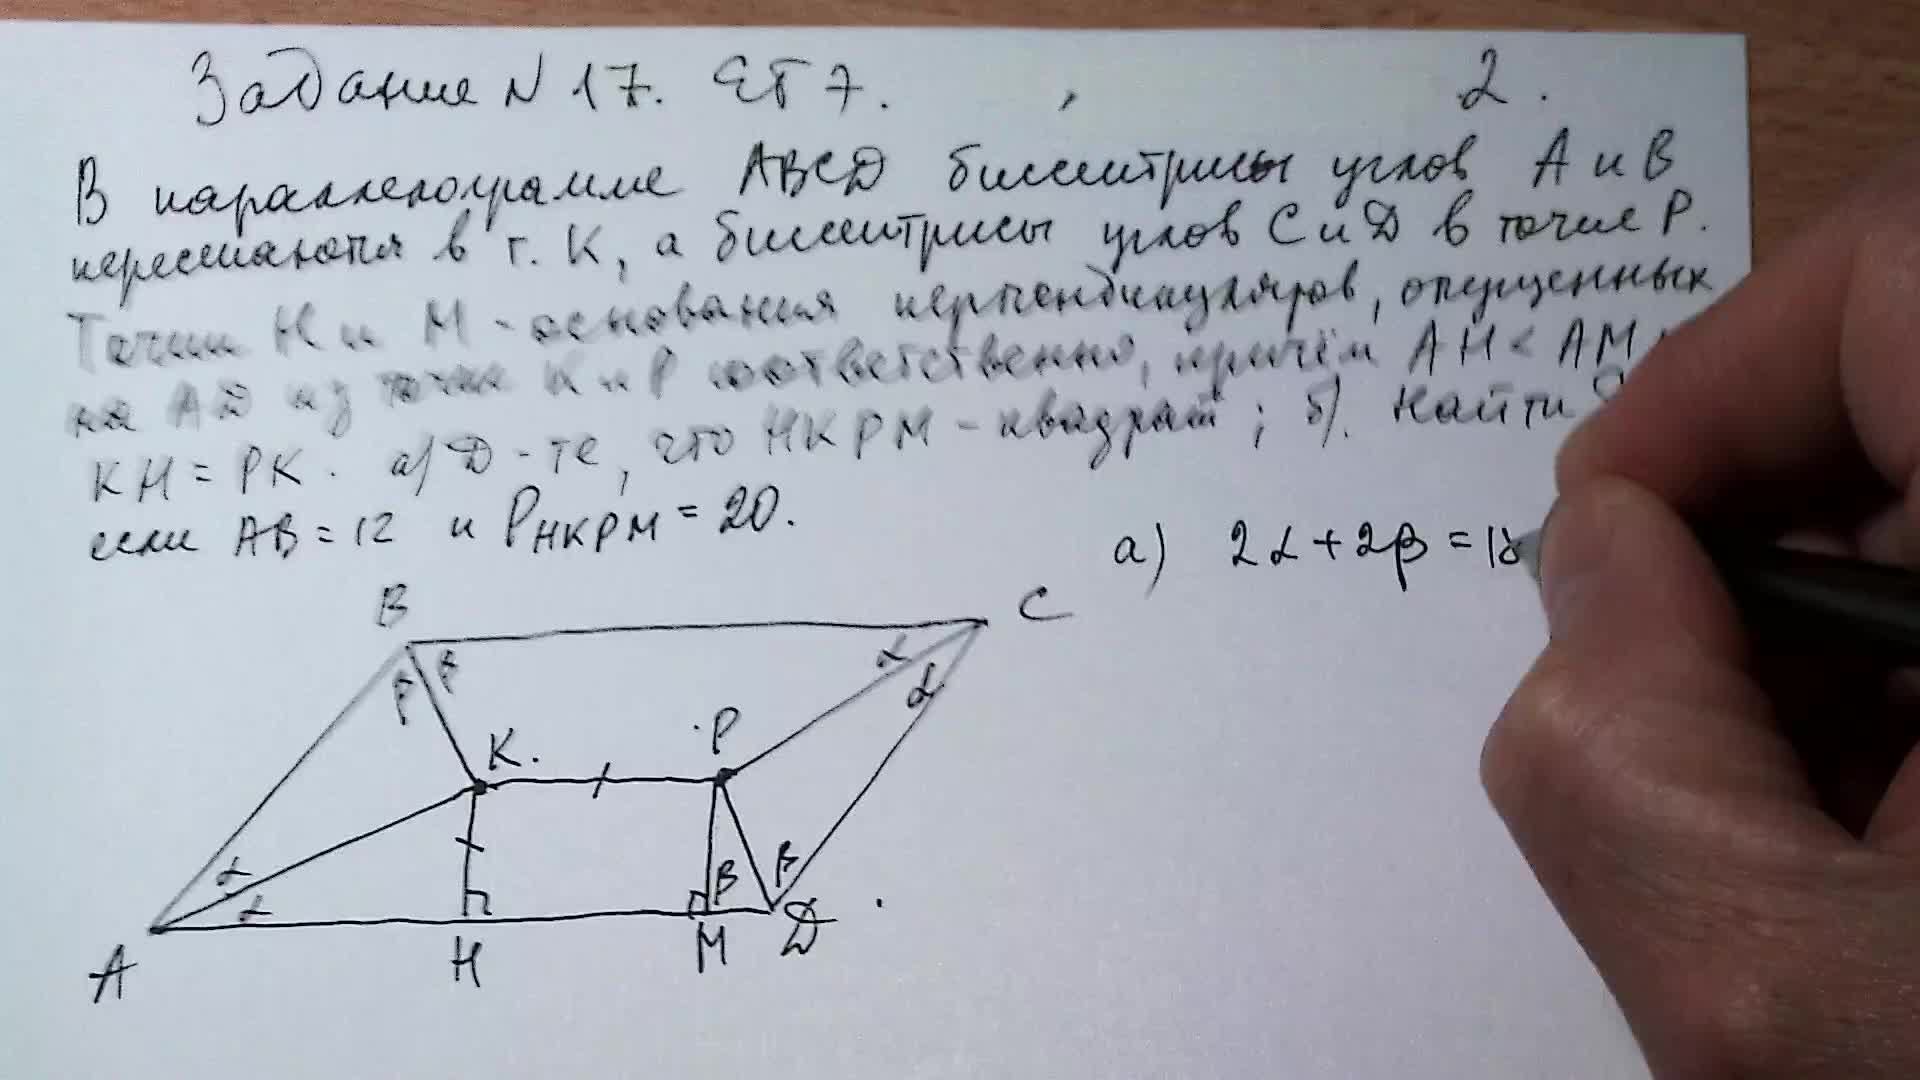 Задание N 17. ЕГЭ 7. 2.
В параллелограмме ABCD биссектрисы углов A и B
пересекаются в т. K, а биссектрисы углов C и D в точке P.
Точки H и M - основания перпендикуляров, опущенных
на AD из точек K и P соответственно, причём AH < AM
KH = PK. а) Д-те, что HKPM - квадрат; б). Найти
если AB = 12 и P HKPM = 20.
а) 2α + 2β = 18
B C
β β α α
K. P
α α β β
A H M D